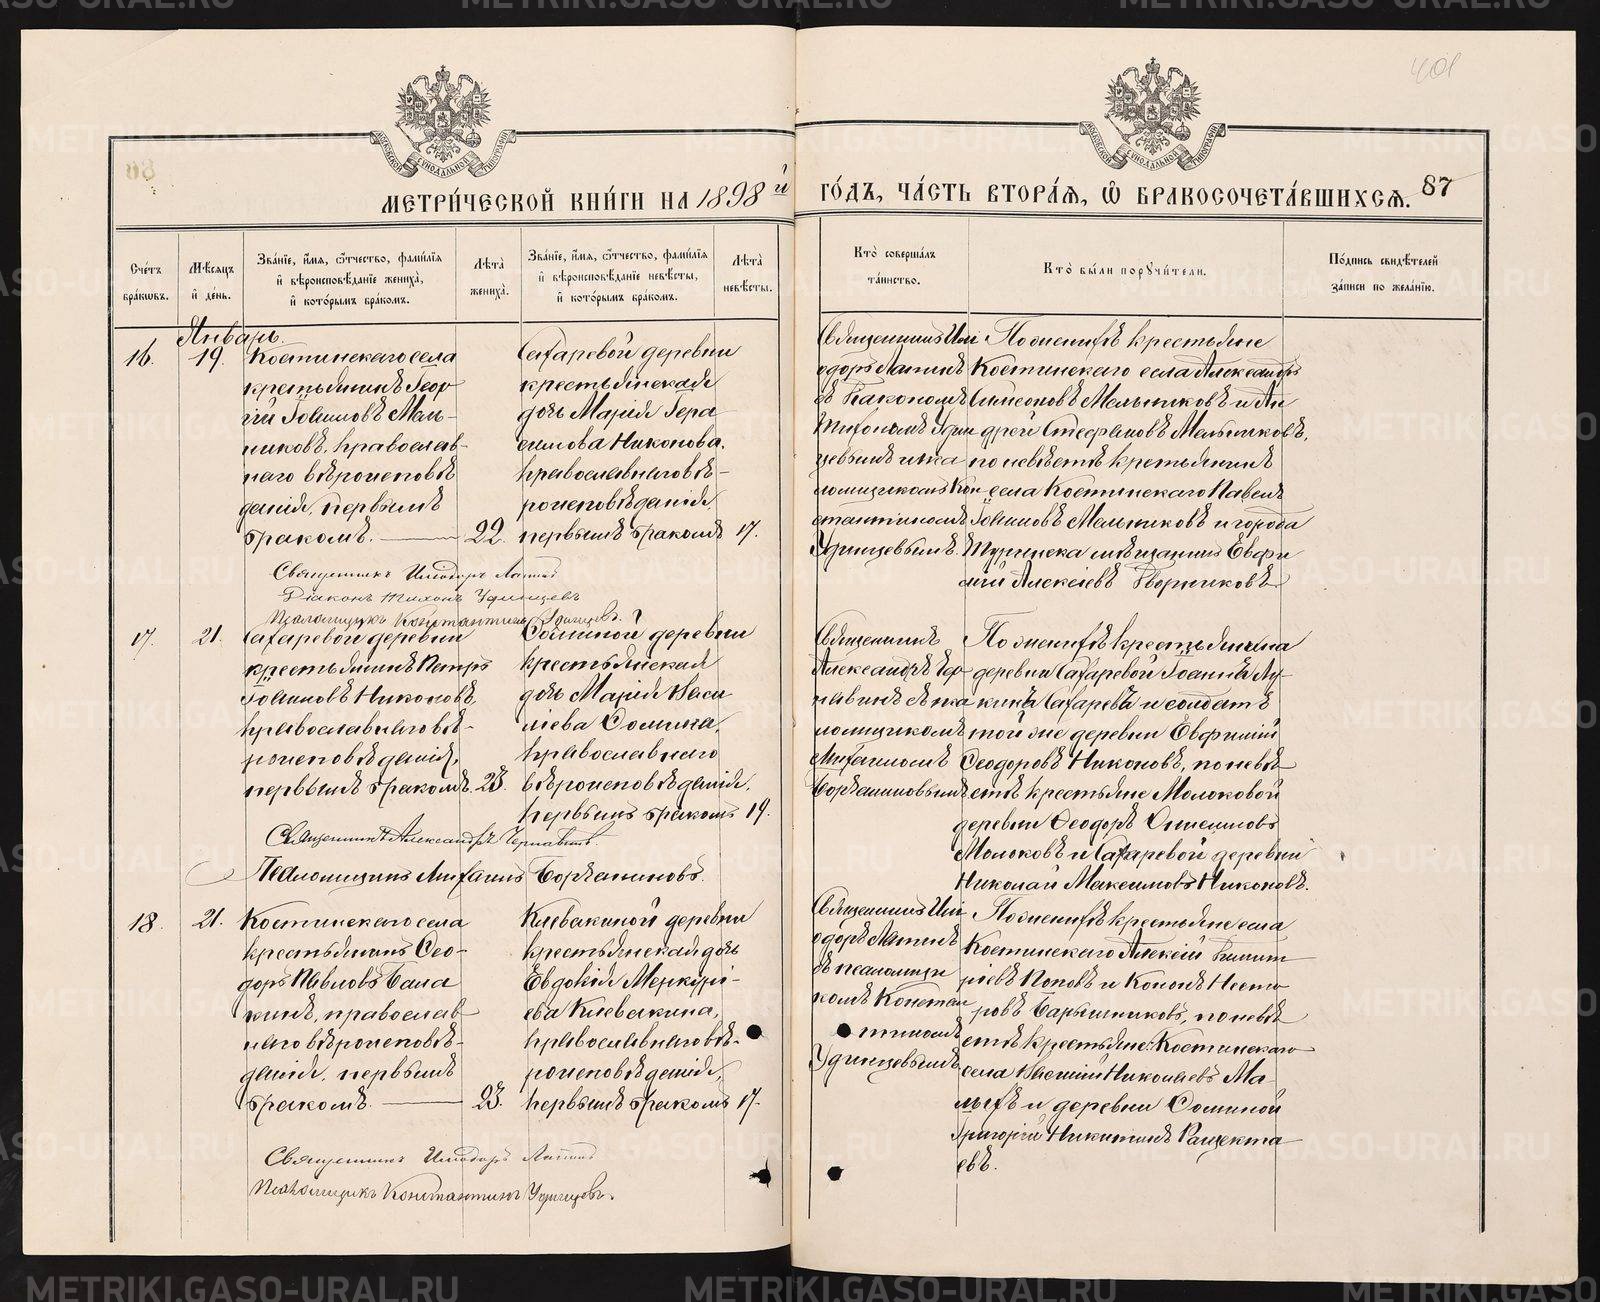 401
МЕТРИ́ЧЕСКОЙ КНИ́ГИ НА 1898 й
ГО́ДЪ, ЧА́СТЬ ВТОРА́Я, Ѽ БРАКОСОЧЕТА́ВШИХСЯ.
87
Сче́тъ бра́ковъ.
Мѣсяцъ и҆ де́нь.
Зва́нїе, и҆́мя, ѻ҆́тчество, фами́лїя и҆ вѣроисповѣ́данїе жениха̀, и҆ кото́рымъ бра́комъ.
Лѣта̀ жениха̀.
Зва́нїе, и҆́мя, ѻ҆́тчество, фами́лїя и҆ вѣроисповѣ́данїе невѣ́сты, и҆ кото́рымъ бра́комъ.
Лѣта̀ невѣ́сты.
Кто̀ соверша́лъ та́инство.
Кто̀ бы́ли поручи́тели.
По́дпись свидѣ́телей за́писи по жела́нїю.
Январь.
16.
19.
Костинскаго села
крестьянинъ Геор
гій Іоанновъ Мель-
никовъ, православ-
наго вѣроисповѣ
данія, первымъ
бракомъ.
22.
Сахаревой деревни
крестьянская
дочь Марія Гера
симова Никонова,
православнаго вѣ-
роисповѣданія,
первымъ бракомъ
17.
Священникъ Иси
одоръ Лапинъ
съ діакономъ
Тихономъ Удин
цевымъ и пса
ломщикомъ Кон
стантиномъ
Удинцевымъ.
По женихѣ крестьяне
Костинскаго села Александръ
Симеоновъ Мельниковъ и Ан
дрей Стефановъ Мельниковъ,
по невѣстѣ крестьянинъ
села Костинскаго Павелъ
Іоанновъ Мельниковъ и города
Туринска мѣщанинъ Евфи
мій Алексіевъ Дворниковъ
Священникъ Исидоръ Лапинъ
Діаконъ Тихонъ Удинцевъ
Псаломщикъ Константинъ Удинцевъ.
17.
21.
Сахаревой деревни
крестьянинъ Петръ
Іоанновъ Никоновъ,
православнаго вѣ-
роисповѣданія,
первымъ бракомъ.
23.
Соминой деревни
крестьянская
дочь Марія Васи
ліева Сомина,
православнаго
вѣроисповѣданія,
первымъ бракомъ
19.
Священникъ
Александръ Чер
навинъ съ пса
ломщикомъ
Михаиломъ
По женихѣ крестьянина
деревни Сахаревой Іоаннъ Лу-
кинъ Сахаревъ и солдатъ
той же деревни Евфимій
Ѳеодоровъ Никоновъ, по невѣ
стѣ крестьяне Молоковой
деревни Ѳеодоръ Онисимовъ
Молоковъ и Сахаревой деревни
Николай Максимовъ Никоновъ.
Священникъ Александръ Чернавинъ.
Псаломщикъ Михаилъ
18.
21.
Костинскаго села
крестьянинъ Ѳео-
доръ Павловъ Бала
кинъ, православ
наго вѣроисповѣ-
данія, первымъ
бракомъ.
23.
Клевакиной деревни
крестьянская дочь
Евдокія Меркурі-
ева Клевакина,
православнаго вѣ-
роисповѣданія,
первымъ бракомъ
17.
Священникъ Иси
одоръ Лапинъ
съ псаломщи
комъ Констан
тиномъ
Удинцевымъ
По женихѣ крестьяне села
Костинскаго Алексій Димит
ріевъ Поповъ и Кононъ Несто
ровъ Барышниковъ, по невѣ
стѣ крестьяне: Костинскаго
села Василій Николаевъ Ма-
лыхъ и деревни Соминой
Григорій Никитинъ Ращекта
евъ.
Священникъ Исидоръ Лапинъ
Псаломщикъ Константинъ Удинцевъ.
METRIKI.GASO-URAL.RU